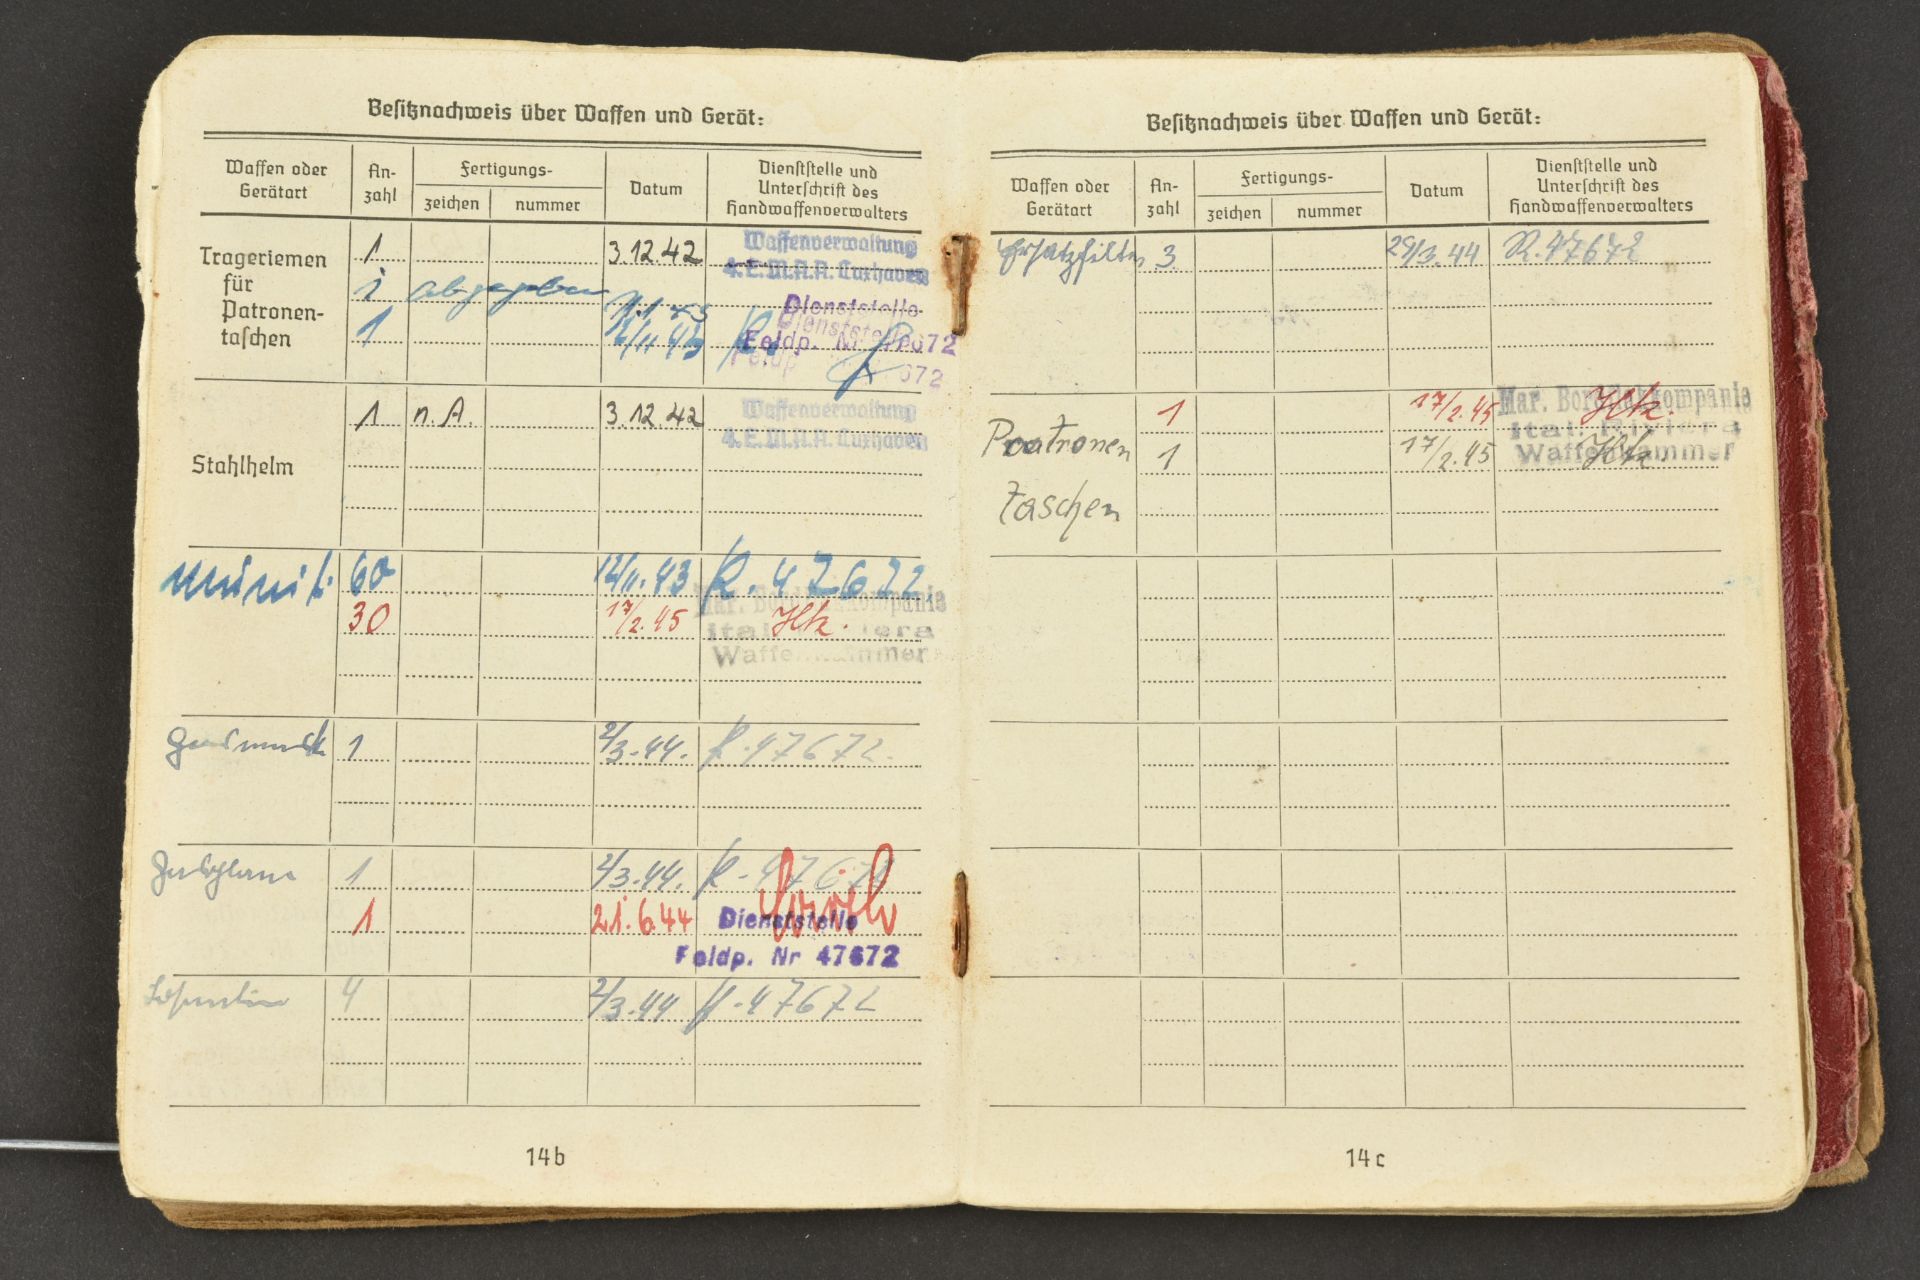 Besitznachweis über Waffen und Gerät:
Waffen oder Gerätart
An-zahl
Fertigungs-
zeichen
nummer
Datum
Dienststelle und Unterschrift des Handwaffenverwalters
Trageriemen
für
Patronen-
taschen
1 3.12.42 Waffenverwaltung
4. E.M.A.A. Cuxhaven
1 abgegeben
Dienststelle
Dienststelle
1 12/11 43
Feldp. Nr
Feldp. 672
Stahlhelm
1 n.A. 3.12.42 Waffenverwaltung
4. E.M.A.A. Cuxhaven
60 12/11.43 R. 47672
30 17/2.45 Mar. Bordflakkompanie
Ital. Riviera
Waffenkammer
Gasmaske 1 2/3.44. R. 47672.
Gasplane 1 2/3.44. R - 47672
1 21.6.44 Dienststelle
Feldp. Nr 47672
4 2/3.44 R - 47672
14b
Besitznachweis über Waffen und Gerät:
Waffen oder Gerätart
An-zahl
Fertigungs-
zeichen
nummer
Datum
Dienststelle und Unterschrift des Handwaffenverwalters
Ersatzfilter 3 29/3.44 R. 47672
Patronen
Taschen
1 17/2.45 Mar. Bordflakkompanie
Ital. Riviera
1 17/2.45 Waffenkammer
14c